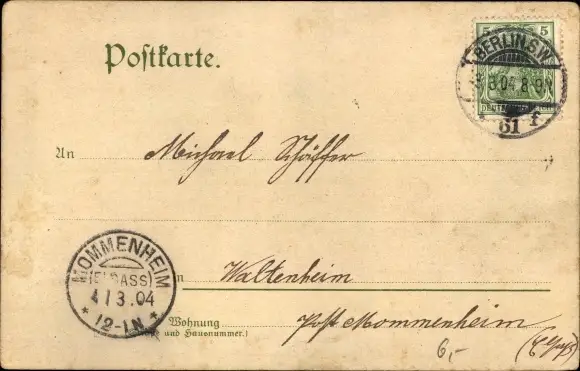 Postkarte.
5 5
BERLIN S.W.
3.04. 8-9
61 f.
An Michael Schäffer
MOMMENHEIM
(ELSASS)
4/3.04
* 12-1N *
in Waltenheim
Wohnung Post Mommenheim
und Hausnummer.)
6,-